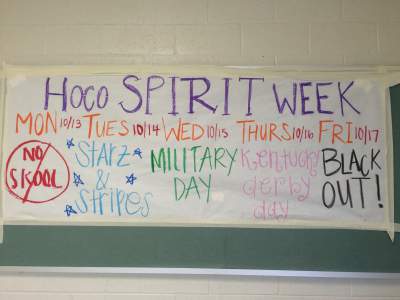 HOCO SPIRIT WEEK
MON 10/13 TUES 10/14 WED 10/15 THURS 10/16 FRI 10/17
NO SKOOL
Starz & Stripes
MILITARY DAY
Kentucky derby day
BLACK OUT!